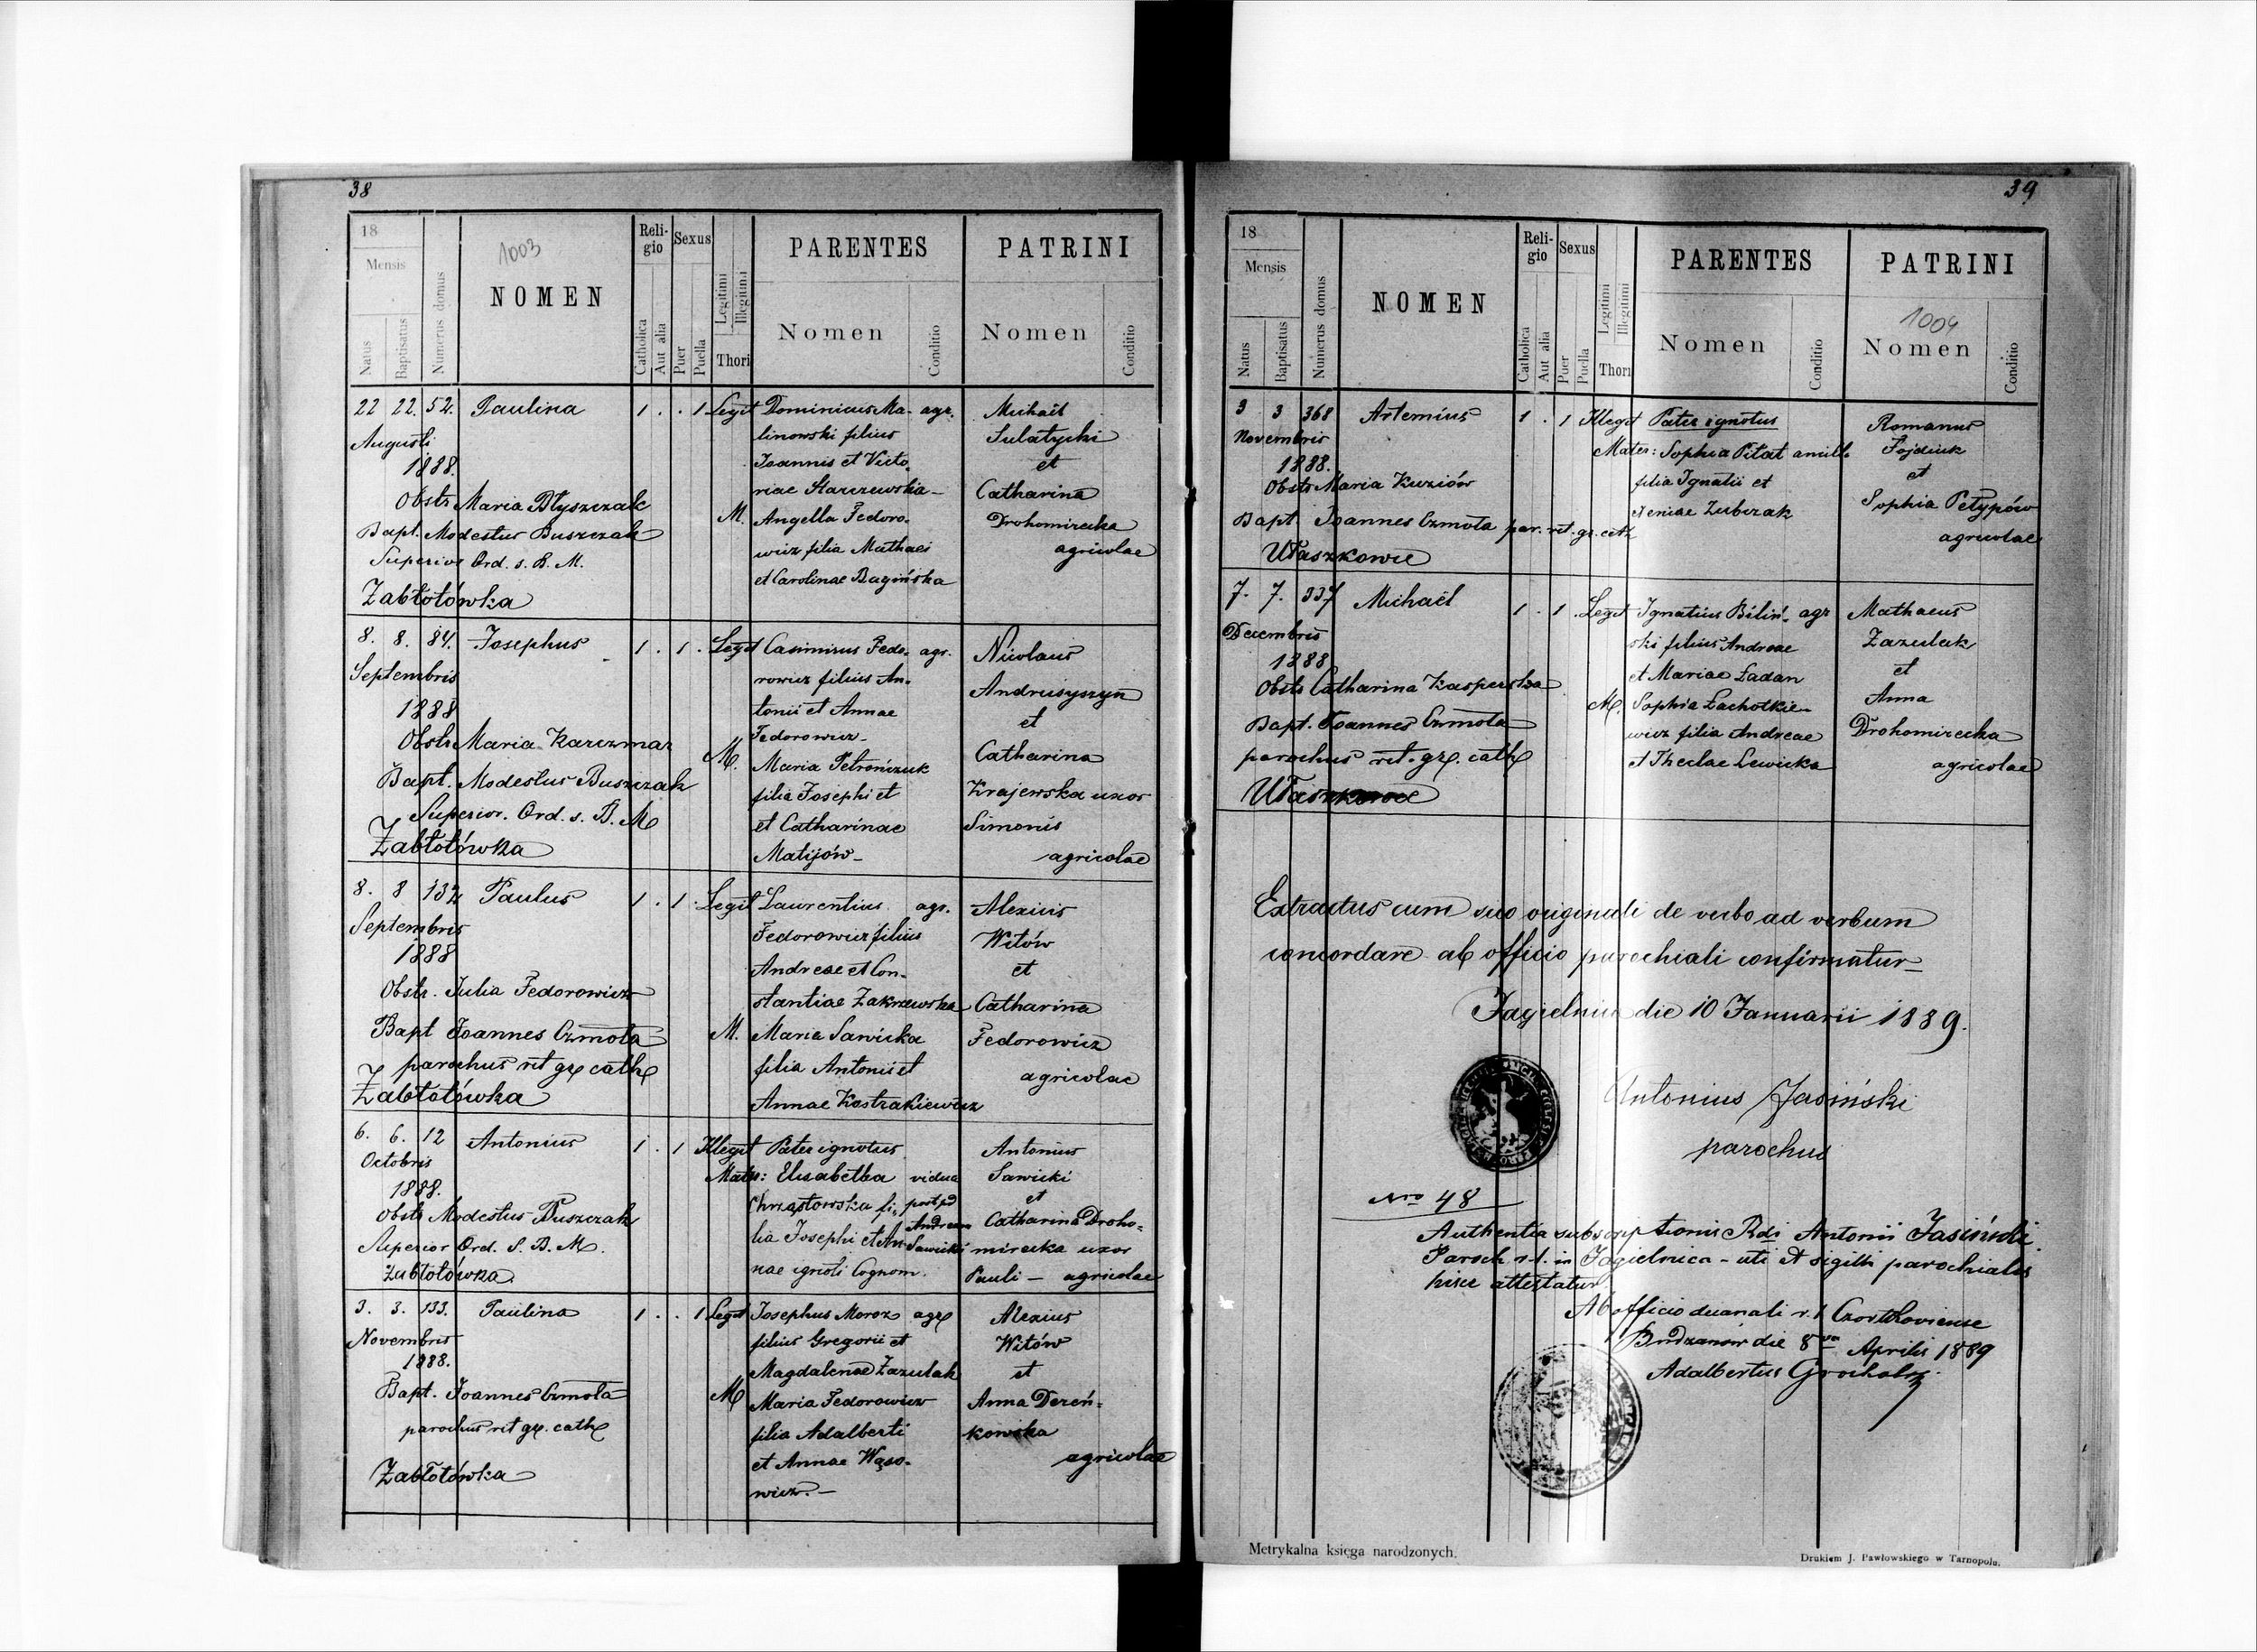 38
18
Mensis
Natus
Baptisatus
Numerus domus
1003
NOMEN
Religio
Catholica
Aut alia
Sexus
Puer
Puella
Legitimi
Illegitimi
Thori
PARENTES
Nomen
Conditio
PATRINI
Nomen
Conditio
22 22. 52. Paulina 1 . . 1 Legit Dominicus Ma- agr. Michaël
Augusti linowski filius Sulatycki
1888. Joannis et Victo- et
riae Starzewska- Catharina
Obstr Maria Błyszczak M. Angella Fedoro- Drohomirecka
Bapt. Modestus Buszczak wicz filia Mathaei agricolae
Superior Ord. s. B. M. et Carolinae Bagińska
Zabłotówka
8. 8. 84. Josephus 1 . 1 . Legit Casimirus Fedo- agr. Nicolaus
Septembris rowicz filius An- Andrusyszyn
1888 tonii et Annae et
Obstr Maria Karczmar Fedorowicz- Catharina
Bapt. Modestus Buszczak M. Maria Petrończuk Krajewska uxor
Superior. Ord. s. B. M filia Josephi et Simonis
Zabłotówka et Catharinae agricolae
Matijów-
8. 8 132 Paulus 1 . 1 . Legit Laurentius agr. Alexius
Septembris Fedorowicz filius Witów
1888 Andreae et Con- et
Obstr. Julia Fedorowicz stantiae Zakrzewska Catharina
Bapt Joannes Czmoła M. Maria Sawicka Fedorowicz
parochus rit gr cath filia Antonii et agricolae
Zabłotówka Annae Kostrakiewicz
6. 6. 12 Antonius 1 . 1 Illegit Pater ignotus Antonius
Octobris Mater: Elisabetha vidua Sawicki
1888. Chrząstowska fi- post pd et
Obstr Modestus Buszczak lia Josephi et An- Andream Sawicki Catharina Droho-
Superior Ord. S. B. M. nae ignoti Cognom. mirecka uxor
Zabłotówka. Pauli - agricolae
3. 3. 133. Paulina 1 . . 1 Legit Josephus Moroz agr Alexius
Novembris filius Gregorii et Witów
1888. Magdalenae Zazulak et
Bapt. Joannes Czmoła M Maria Fedorowicz Anna Dereń-
parochus rit gr. cath filia Adalberti kowska
Zabłotówka et Annae Wąso- agricolae
wicz.-
39
18
Mensis
Natus
Baptisatus
Numerus domus
NOMEN
Religio
Catholica
Aut alia
Sexus
Puer
Puella
Legitimi
Illegitimi
Thori
PARENTES
Nomen
Conditio
PATRINI
1004
Nomen
Conditio
3 3 368 Artemius 1 . 1 Illegit Pater ignotus Romanus
Novembris Mater: Sophia Pitat Fojdiuk
1888. filia Ignatii et et
Obstr Maria Kuziów Xeniae Zubczak Sophia Petypów
Bapt Joannes Czmoła par. rit. gr. cath agricolae
Ułaszkowce
7. 7. 337 Michaël 1 . 1 . Legit Ignatius Biliń- agr Mathaeus
Decembris ski filius Andreae Zazulak
1888 et Mariae Ładan et
Obstr Catharina Kasperska M. Sophia Zachotkie- Anna
Bapt. Joannes Czmoła wicz filia Andreae Drohomirecka
parochus rit. gr. cath et Theclae Lewicka agricolae
Ułaszkowce
Extractus cum suo originali de verbo ad verbum
concordare ab officio parochiali confirmatur-
Jagielnica die 10 Januarii 1889.
Antonius Jasiński
parochus
Nro 48
Authentia subscriptionis Rdi Antonii Jasiński
Paroch r.l. in Jagielnica - uti et sigilli parochialis
hisce attestatur
Ab officio decanali r.l Czortkoviense
Budzanów die 8va Aprilis 1889
Adalbertus
Metrykalna księga narodzonych.
Drukiem J. Pawłowskiego w Tarnopolu.